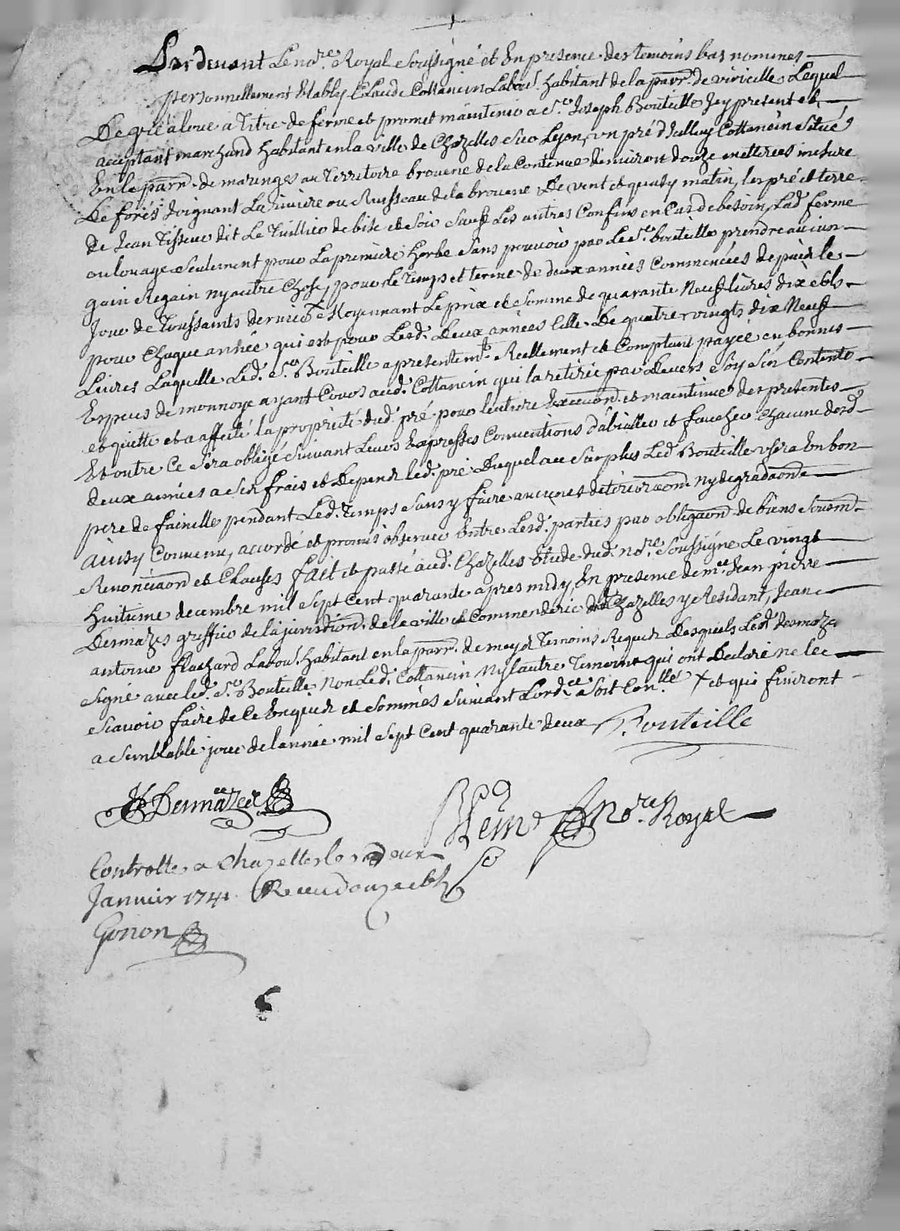 Pardevant Le no.re Royal Soussigné et En presence des temoins bas nommés
personnellement Etably Claude Cottancin Labou.r habitant de la parr.e de viricelle Lequel
De gré a loué a Titre de ferme et promet maintenir a S.r Joseph Bouteille Icy present et
acceptant marchand habitant en la ville de Chazelles Sur Lyon, un pré d'Illuy Cottancin Situé
En la parr.e de maringes au Territoire brouene de la Contenue d'environ douze metterées mesure
De forés Joignant La riviere ou Ruisseau de la brouene De vent et quasy matin, les pré et terre
De Jean Tisseur dit Le Tuillier de bise et Soir Sauf Les autres Confins en Cas de besoin, Lad. ferme
ou louage Seulement pour La premiere herbe Sans pouvoir par Le S.r bouteille prendre aucun
gain Regain ny autre Chose, pour le Temps et terme de deux années Commencées depuis le
Jour de Toussaints dernier + Moyennant Le prix et Somme de quarante Neuf livres dix sols
pour Chaque année, qui est pour Lesd. Deux années Celle De quatre vingts dix Neuf
Livres Laquelle Led. S.r Bouteille a presentem.t Reellement et Comptant payée en bonnes
Especes de monnoye ayant Cours aud. Cottancin qui la retirée par Devers Soy S'en Contente
et quitte et a affecté la propriété dud. pré pour lentiere Execuon et maintenue des presentes
Et outre Ce Sera obligé Suivant Leurs Expresses Conventions d'abialler et faucher Chacune desd.
deux années a Ses frais et Depens led. pré Duquel au Surplus Led. Bouteille usera En bon
pere de famille pendant Led. Temps Sans y faire aucunes deterioraon ny degradaon
Ainsy Convenu, accordé et promis observer Entre Lesd. parties par obligaon de biens Soumon
Renonciaon et Clauses fait et passé aud. Chazelles Etude dud. no.re Soussigné Le vingt
Huitieme decembre mil Sept Cent quarante apres midy En presence de m.e Jean pierre
Desmazes greffier de la jurisdion de la ville et Commenderie de Chazelles y Residant, Jean
antoine fluchard Labou.r habitant en la parr. de meys Temoins Requis Desquels Led. desmazes
Signé avec led. S.r Bouteille Non Led. Cottancin Ny lautre Temoin qui ont Declaré ne le
Scavoir faire de ce Enquis et Sommés Suivant Lord.ce Soit Con.llé + et qui finiront
a Semblable jour de lannée mil Sept Cent quarante deux Bouteille
Desmazes
no.re Royal
Controllé a Chazelles le deux
Janvier 1741. Receu douze sols
Gonon